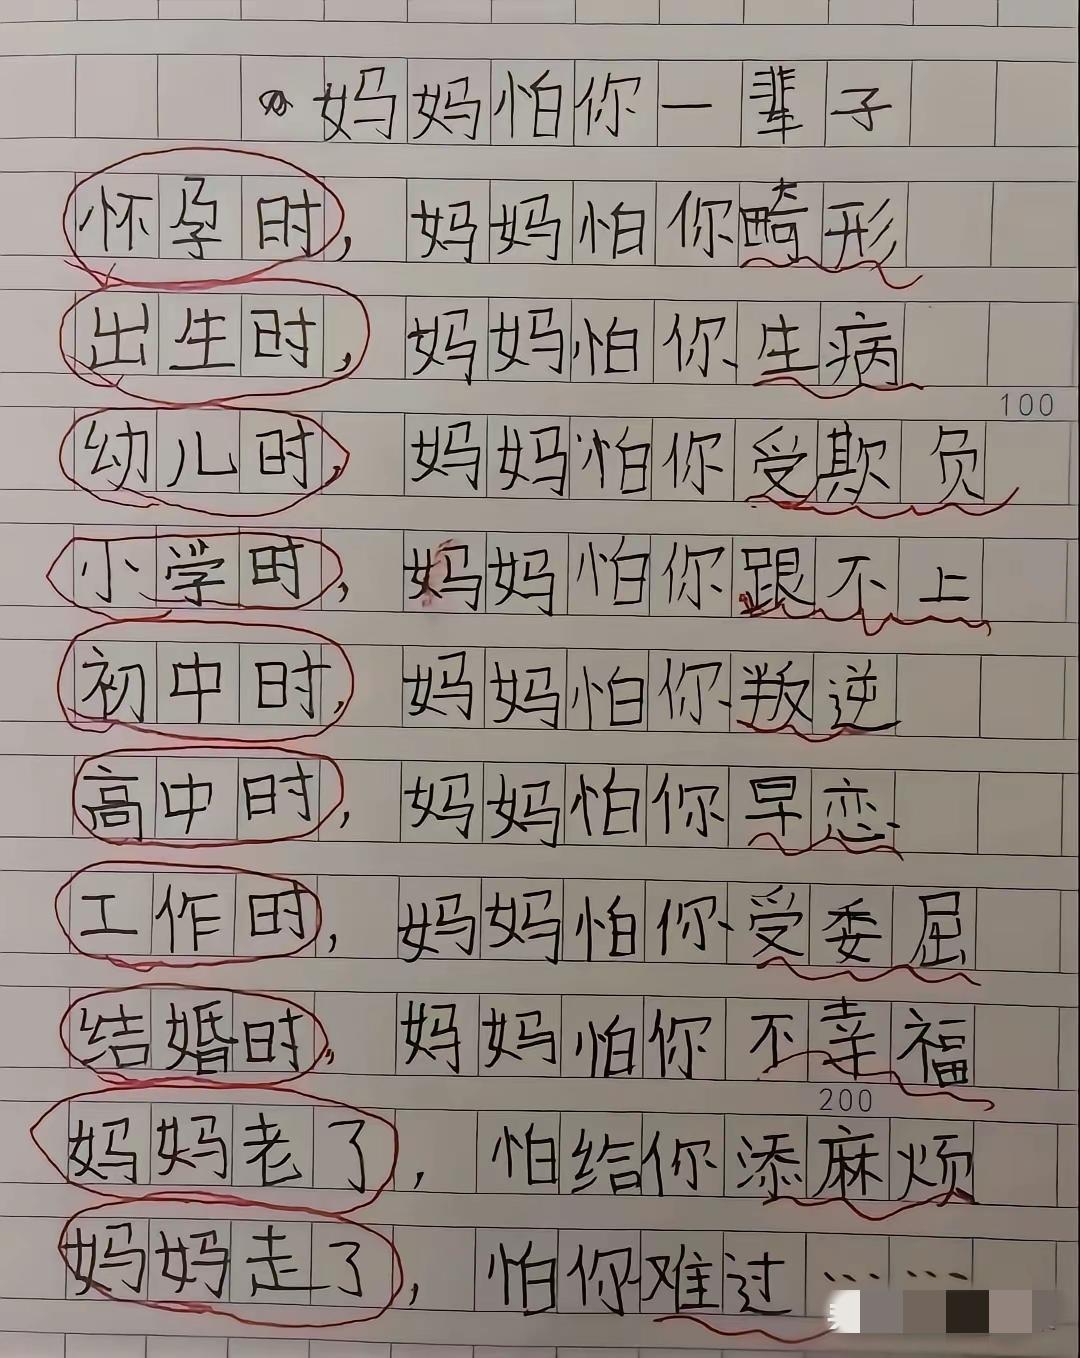 妈妈怕你一辈子
怀孕时，妈妈怕你畸形
出生时，妈妈怕你生病
100
幼儿时，妈妈怕你受欺负
小学时，妈妈怕你跟不上
初中时，妈妈怕你叛逆
高中时，妈妈怕你早恋
工作时，妈妈怕你受委屈
结婚时，妈妈怕你不幸福
200
妈妈老了，怕给你添麻烦
妈妈走了，怕你难过……